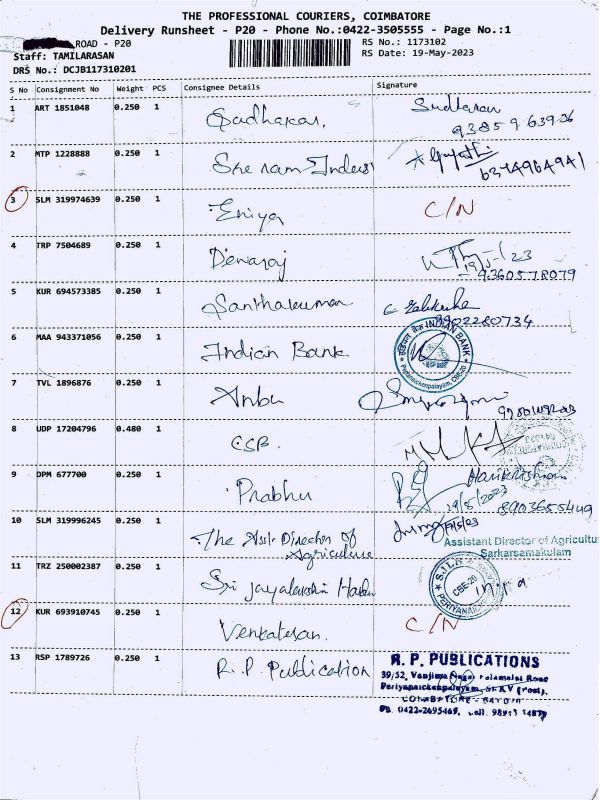 THE PROFESSIONAL COURIERS, COIMBATORE
Delivery Runsheet - P20 - Phone No.:0422-3505555 - Page No.:1
ROAD - P20
RS No.: 1173102
Staff: TAMILARASAN
RS Date: 19-May-2023
DRS No.: DCJB117310201
S No Consignment No Weight PCS Consignee Details Signature
1 ART 1851048 0.250 1 Sudhakar, Sudharan
93859 63936
2 MTP 1228888 0.250 1 Sree ram Indus
6374964941
3 SLM 319974639 0.250 1 Eniya C/N
4 TRP 7504689 0.250 1 Devaraj
9360578079
5 KUR 694573385 0.250 1 Santhakumar
8902280734
6 MAA 943371056 0.250 1 Indian Bank
INDIAN BANK
Perianaickenpalayam, CBE-20
7 TVL 1896876 0.250 1 Anbu
8 UDP 17204796 0.480 1 CSB
9 DPM 677700 0.250 1 Prabhu Harikrishnan
19/5/2023
8903655449
10 SLM 319996245 0.250 1 The Asst Director of
Agriculture
Assistant Director of Agricultu
Sarkarsamakulam
11 TRZ 250002387 0.250 1 Sri Jayalakshmi
CBE-20
12 KUR 693910745 0.250 1 Venkatesan. C/N
13 RSP 1789726 0.250 1 R.P. Publication
R. P. PUBLICATIONS
39/52, Vanjima Nagar Palamalai Road
Periyanaickenpalayam, SRKV (Post),
COIMBATORE
Ph. 0422-2695469, Cell.